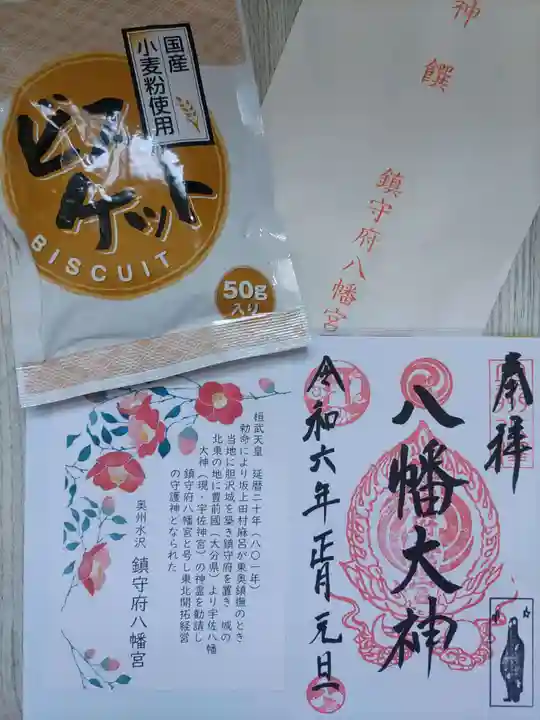 国産
小麦粉使用
ビスケット
BISCUIT
50g
入り
神饌
鎮守府八幡宮
奉拝
八幡大神
令和六年正月元旦
桓武天皇 延暦二十年(八〇一年)
勅命により坂上田村麻呂が東奥鎮撫のとき
当地に胆沢城を築き鎮守府を置き 城の
北東の地に豊前國(大分県)より宇佐八幡
大神(現・宇佐神宮)の神霊を勧請し
鎮守府八幡宮と号し東北開拓経営
の守護神となられた
奥州水沢 鎮守府八幡宮